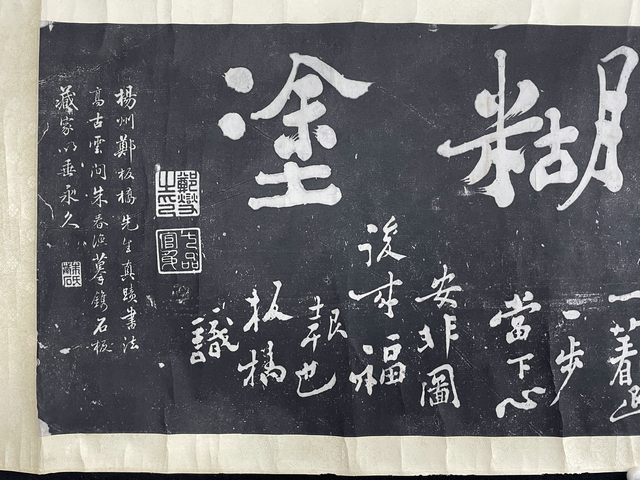 糊塗
一著退
一步
當下心
安非圖
後來福
報也
板橋
識
鄭燮之印
七品官耳
楊州鄭板橋先生真蹟書法
高古雲間朱春漁摹鐫石板
藏家以垂永久